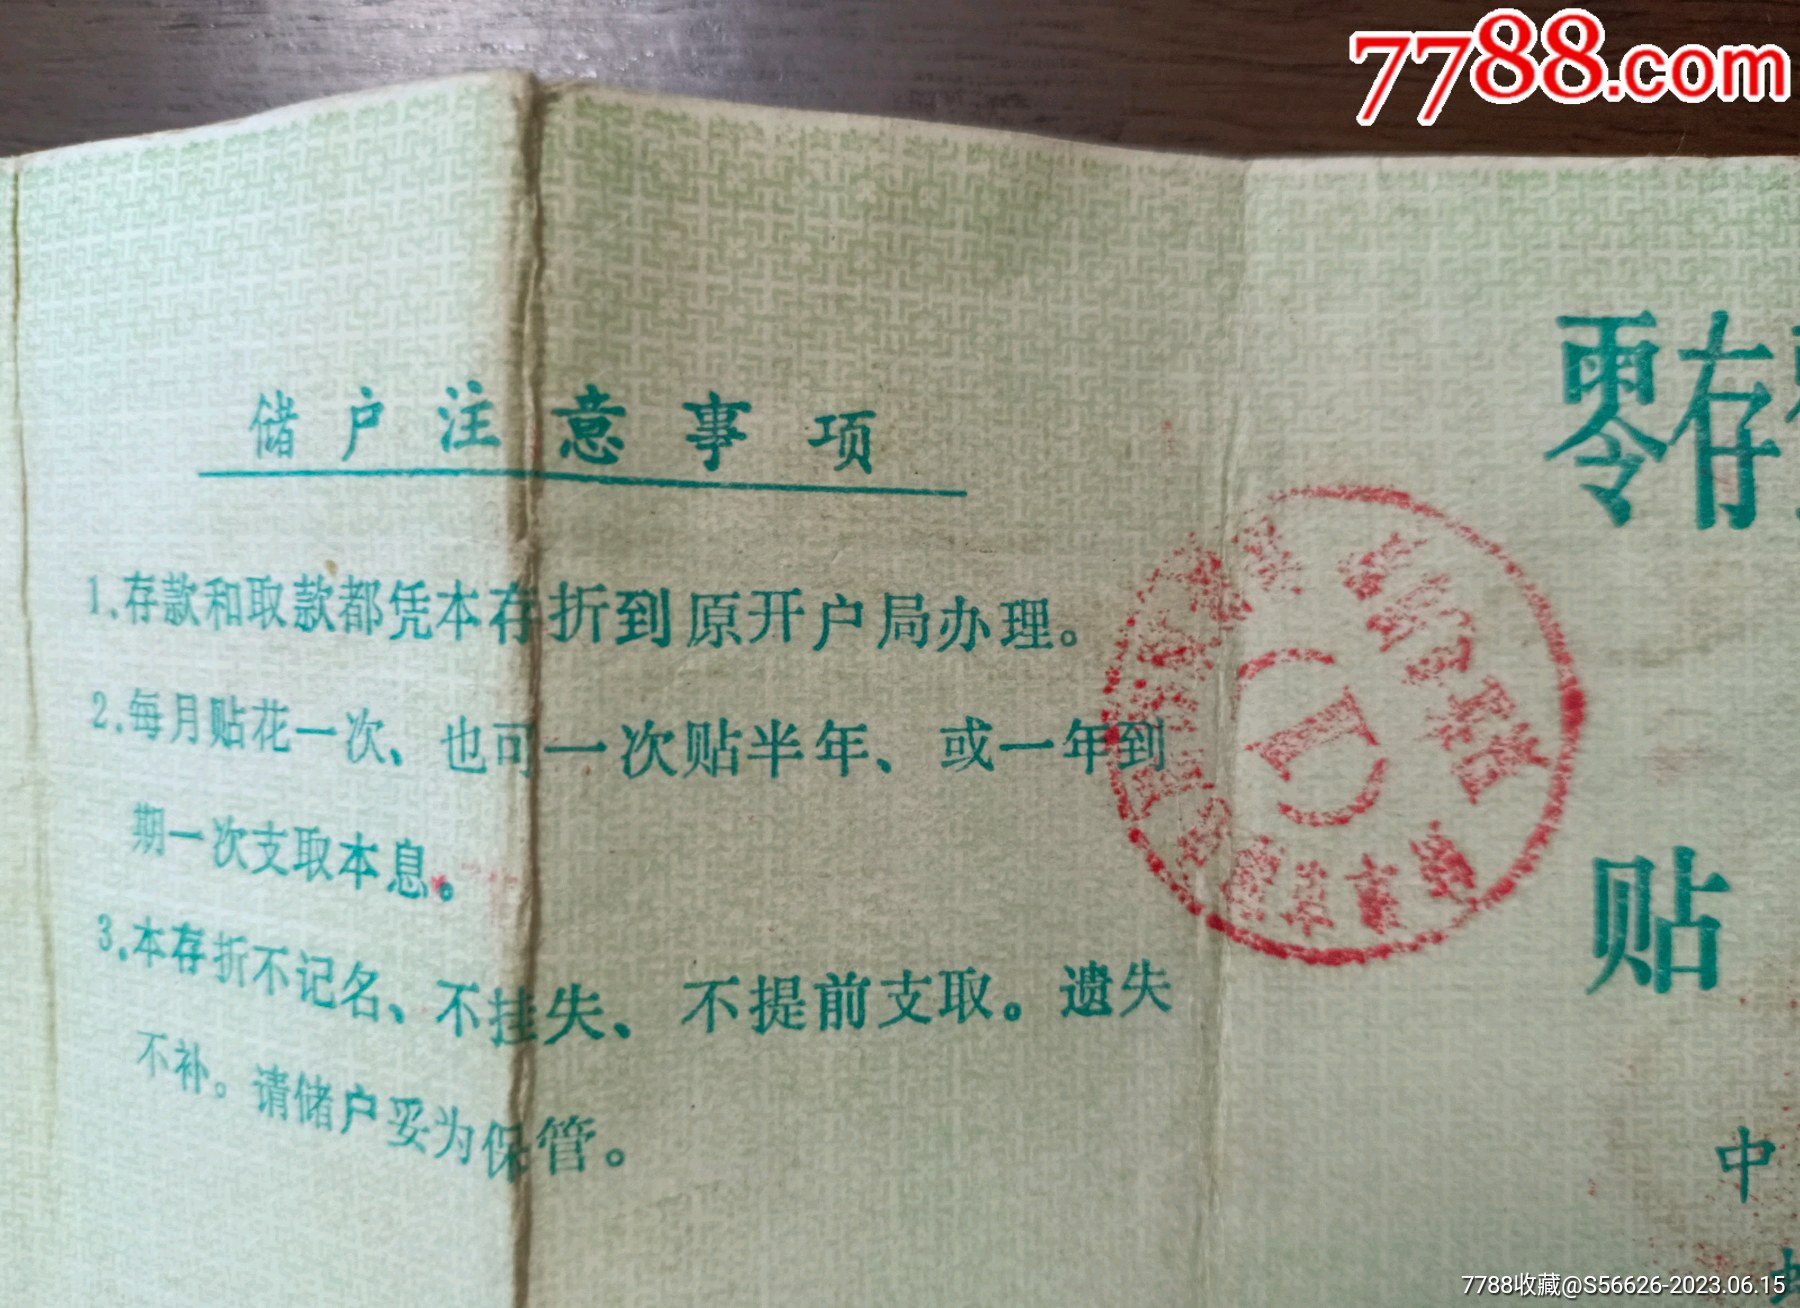 7788.com
储户注意事项
1.存款和取款都凭本存折到原开户局办理。
2.每月贴花一次、也可一次贴半年、或一年到
期一次支取本息。
3.本存折不记名、不挂失、不提前支取。遗失
不补。请储户妥为保管。
零存
贴
中
7788收藏@S56626-2023.06.15